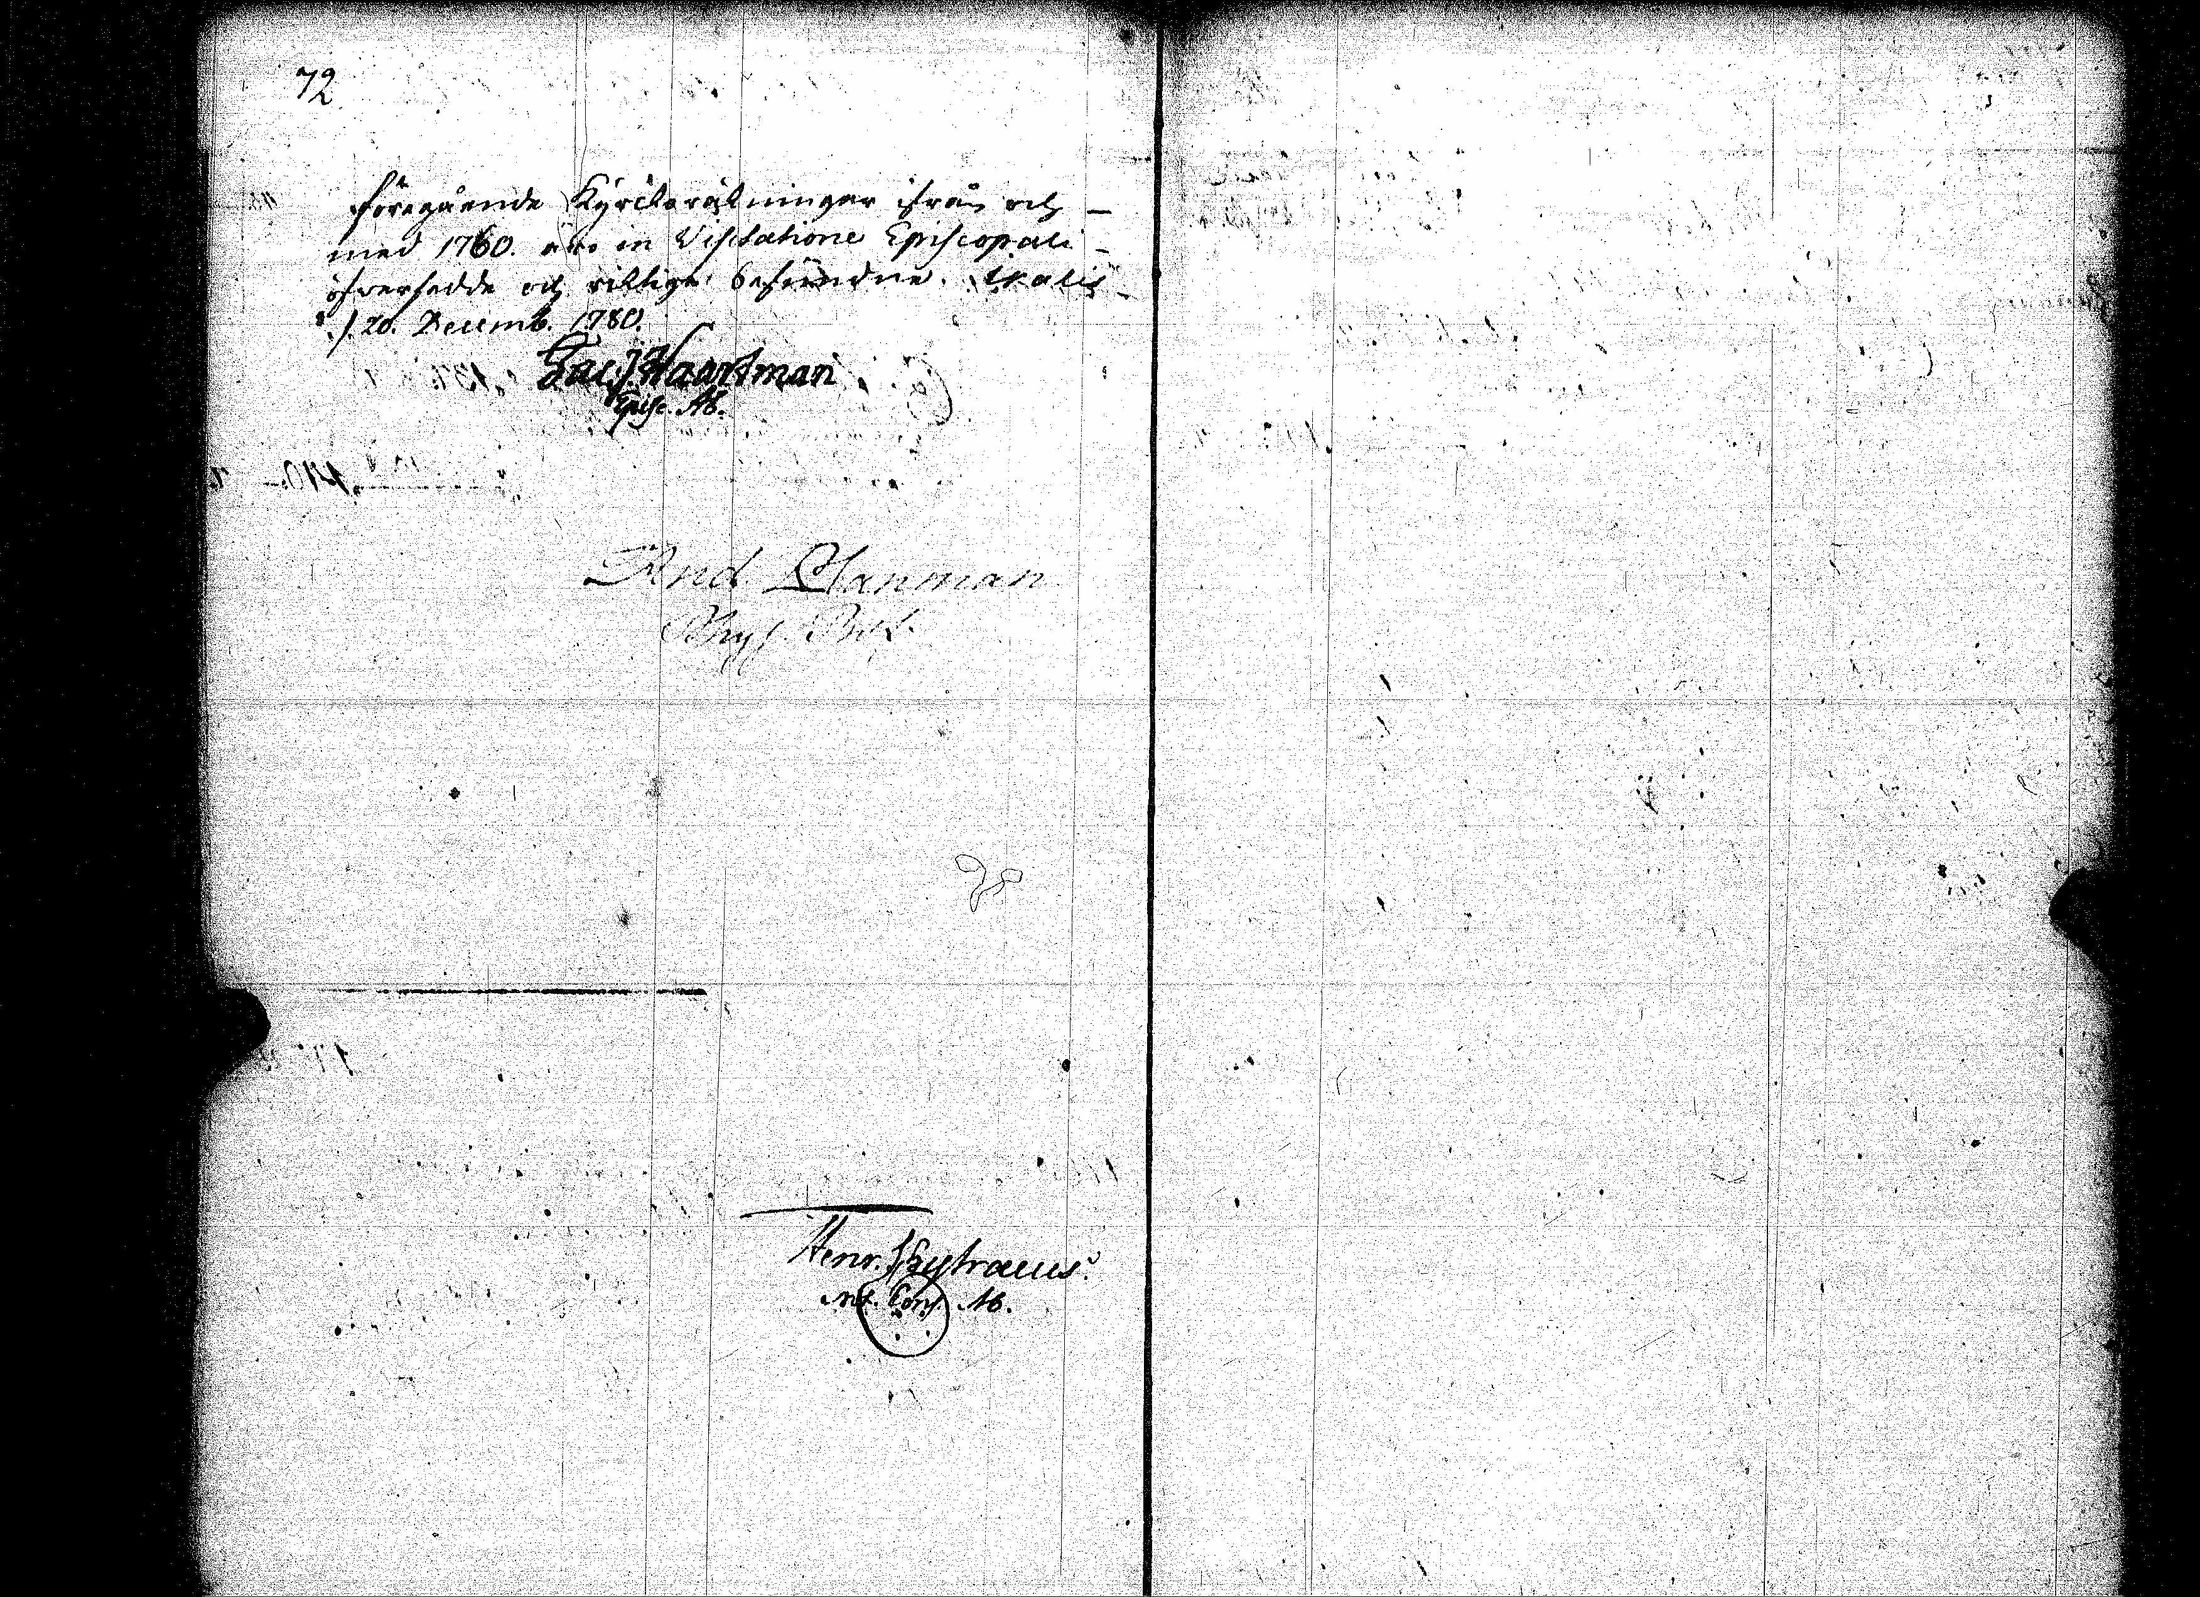 72
föregående Kyrckoräkningar ifrån och
med 1760. äro in Visitatione Episcopali
öfwersedde och riktige befundne. Ikalis
d. 20. Decemb. 1780.
Jac. Haartman
Episc. Ab.
And. Planman
Phys. Prof.
Henr.
Not. Cons. Ab.